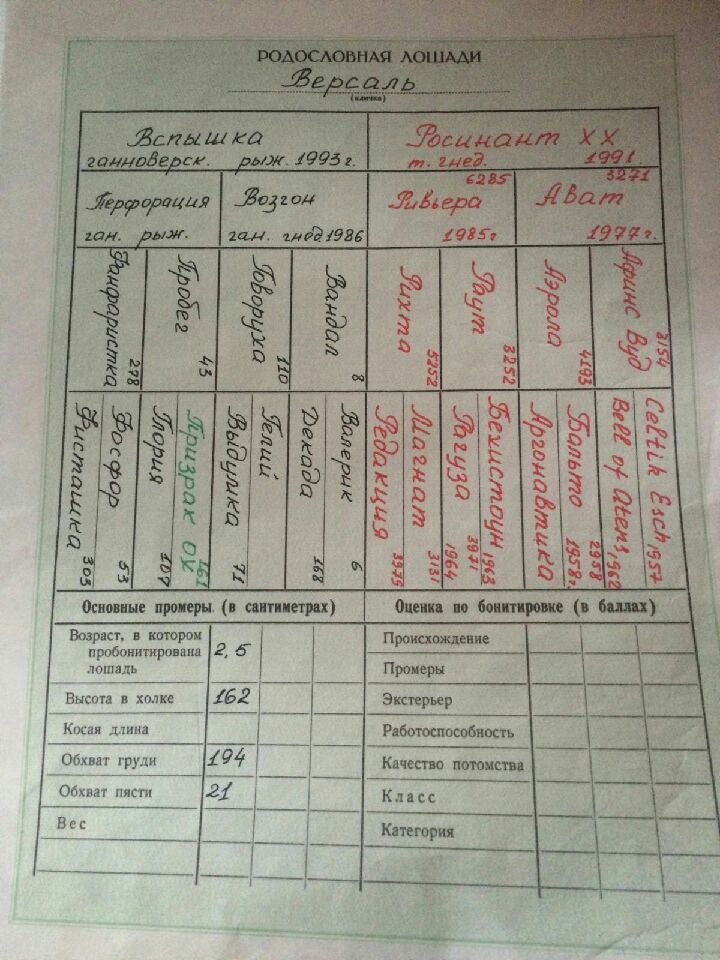 РОДОСЛОВНАЯ ЛОШАДИ
Версаль
(кличка)
Вспышка
ганноверск. рыж. 1993 г.
Росинант ХХ
т. гнед. 1991.
Перфорация
ган. рыж.
Возгон
ган. гнед 1986
6285
Ривьера
1985г
3271
Ават
1977г.
Фанфаристка 278
Пробег 43
Говоруха 110
Вандал 8
Рихта 5252
Раут 3252
Аэрола 4193
Афинс Вуд 3154
Фисташка 303
Фосфор 53
Глория 107
Призрак ОХ 161
Выдумка 71
Гелий
Декада 168
Валерик 6
Редакция 3975
Магнат 3131
Рагуза 3971 1964
Бехистоун 1963
Аргонавтика
Бальто 2958 1958г.
Bell of Atens, 1962
Celtik Esch 1957
Основные промеры (в сантиметрах)
Оценка по бонитировке (в баллах)
Возраст, в котором
пробонитирована
лошадь
2,5
Высота в холке 162
Косая длина
Обхват груди 194
Обхват пясти 21
Вес
Происхождение
Промеры
Экстерьер
Работоспособность
Качество потомства
Класс
Категория